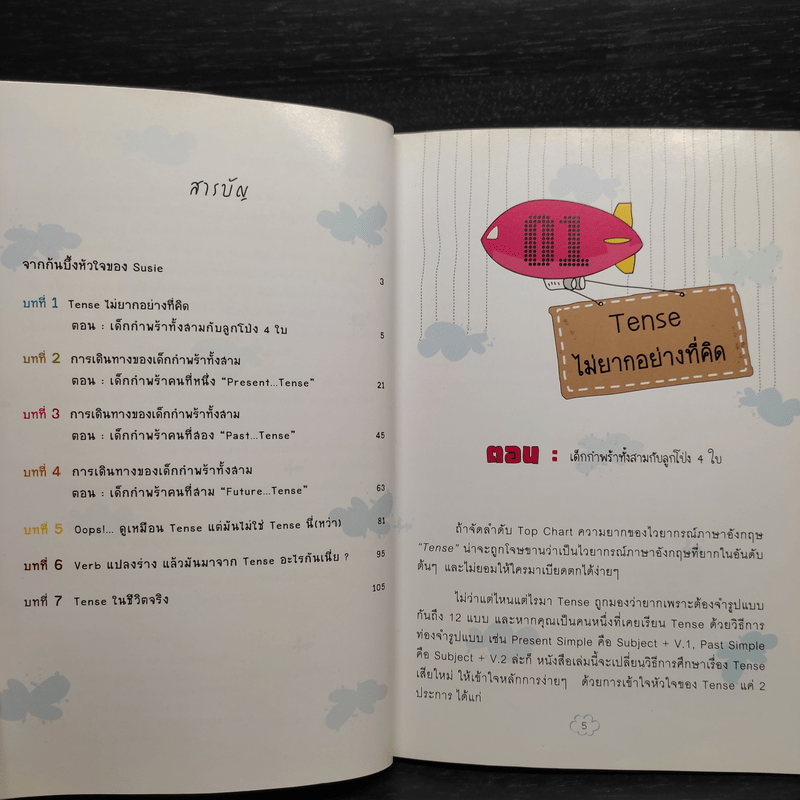 สารบัญ
จากก้นบึ้งหัวใจของ Susie
3
บทที่ 1 Tense ไม่ยากอย่างที่คิด
ตอน : เด็กกำพร้าทั้งสามกับลูกโป่ง 4 ใบ
5
บทที่ 2 การเดินทางของเด็กกำพร้าทั้งสาม
ตอน : เด็กกำพร้าคนที่หนึ่ง “Present...Tense”
21
บทที่ 3 การเดินทางของเด็กกำพร้าทั้งสาม
ตอน : เด็กกำพร้าคนที่สอง “Past...Tense”
45
บทที่ 4 การเดินทางของเด็กกำพร้าทั้งสาม
ตอน : เด็กกำพร้าคนที่สาม “Future...Tense”
63
บทที่ 5 Oops!... ดูเหมือน Tense แต่มันไม่ใช่ Tense นี่(หว่า)
81
บทที่ 6 Verb แปลงร่าง แล้วมันมาจาก Tense อะไรกันเนี่ย ?
95
บทที่ 7 Tense ในชีวิตจริง
105
01
Tense
ไม่ยากอย่างที่คิด
ตอน : เด็กกำพร้าทั้งสามกับลูกโป่ง 4 ใบ
ถ้าจัดลำดับ Top Chart ความยากของไวยากรณ์ภาษาอังกฤษ
“Tense” น่าจะถูกโจษขานว่าเป็นไวยากรณ์ภาษาอังกฤษที่ยากในอันดับ
ต้นๆ และไม่ยอมให้ใครมาเบียดตกได้ง่ายๆ
ไม่ว่าแต่ไหนแต่ไรมา Tense ถูกมองว่ายากเพราะต้องจำรูปแบบ
กันถึง 12 แบบ และหากคุณเป็นคนหนึ่งที่เคยเรียน Tense ด้วยวิธีการ
ท่องจำรูปแบบ เช่น Present Simple คือ Subject + V.1, Past Simple
คือ Subject + V.2 ล่ะก็ หนังสือเล่มนี้จะเปลี่ยนวิธีการศึกษาเรื่อง Tense
เสียใหม่ ให้เข้าใจหลักการง่ายๆ ด้วยการเข้าใจหัวใจของ Tense แค่ 2
ประการ ได้แก่
5